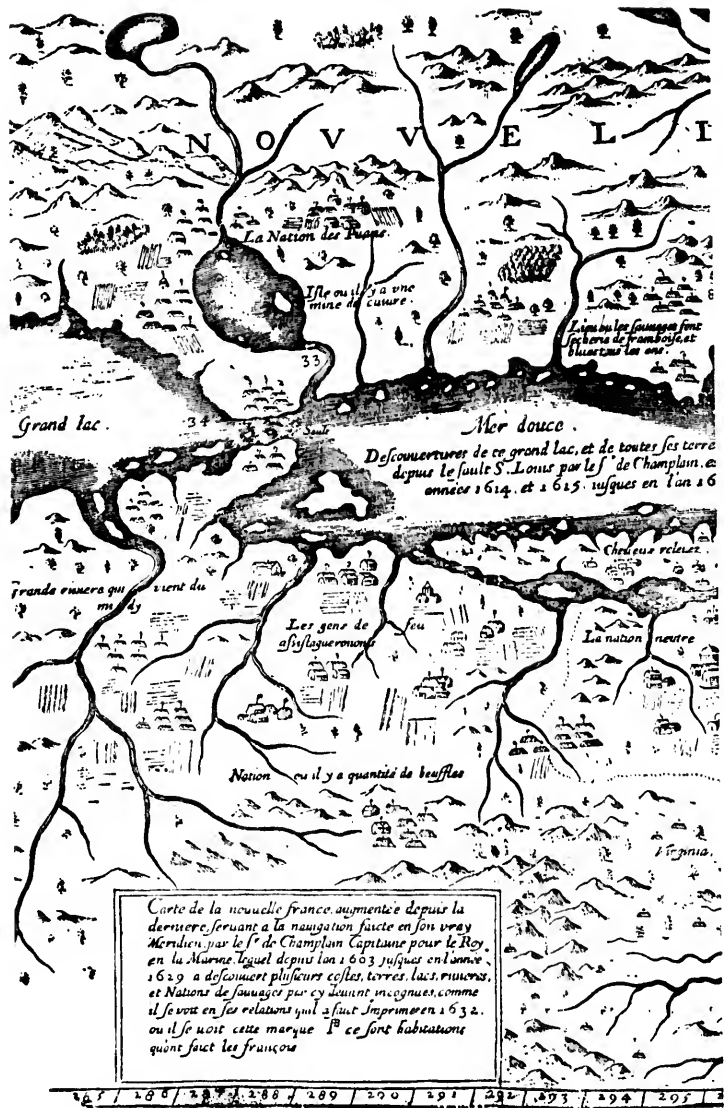 NOVVELL
La Nation des Puans
Isle ou il y a vne
mine de cuiure.
33
Lieu ou les sauuages font
secherie de framboise, et
blues tous les ans.
Grand lac.
34
Sault
Mer douce.
Descouuertures de ce grand lac, et de toutes ses terre
depuis le sault S. Louis par le sr de Champlain, es
années 1614. et 1615. iusques en l'an 16
Cheueux releuez
grande riuiere qui vient du
midy
Les gens de feu
asistaqueronons
La nation neutre
Nation ou il y a quantité de beuffles
Virginia.
Carte de la nouuelle france, augmentée depuis la
derniere, seruant a la nauigation faicte en son vray
Meridien, par le sr de Champlain Capitaine pour le Roy
en la Marine, lequel depuis lan 1603 jusques en l'année
1629 a descouuert plusieurs costes, terres, lacs, riuieres,
et Nations de sauuages par cy deuant incognues, comme
il se voit en ses relations quil a faict Imprimer en 1632.
ou il se uoit cette marque ce sont habitations
qu'ont faict les françois
285 286 287 288 289 290 291 292 293 294 295